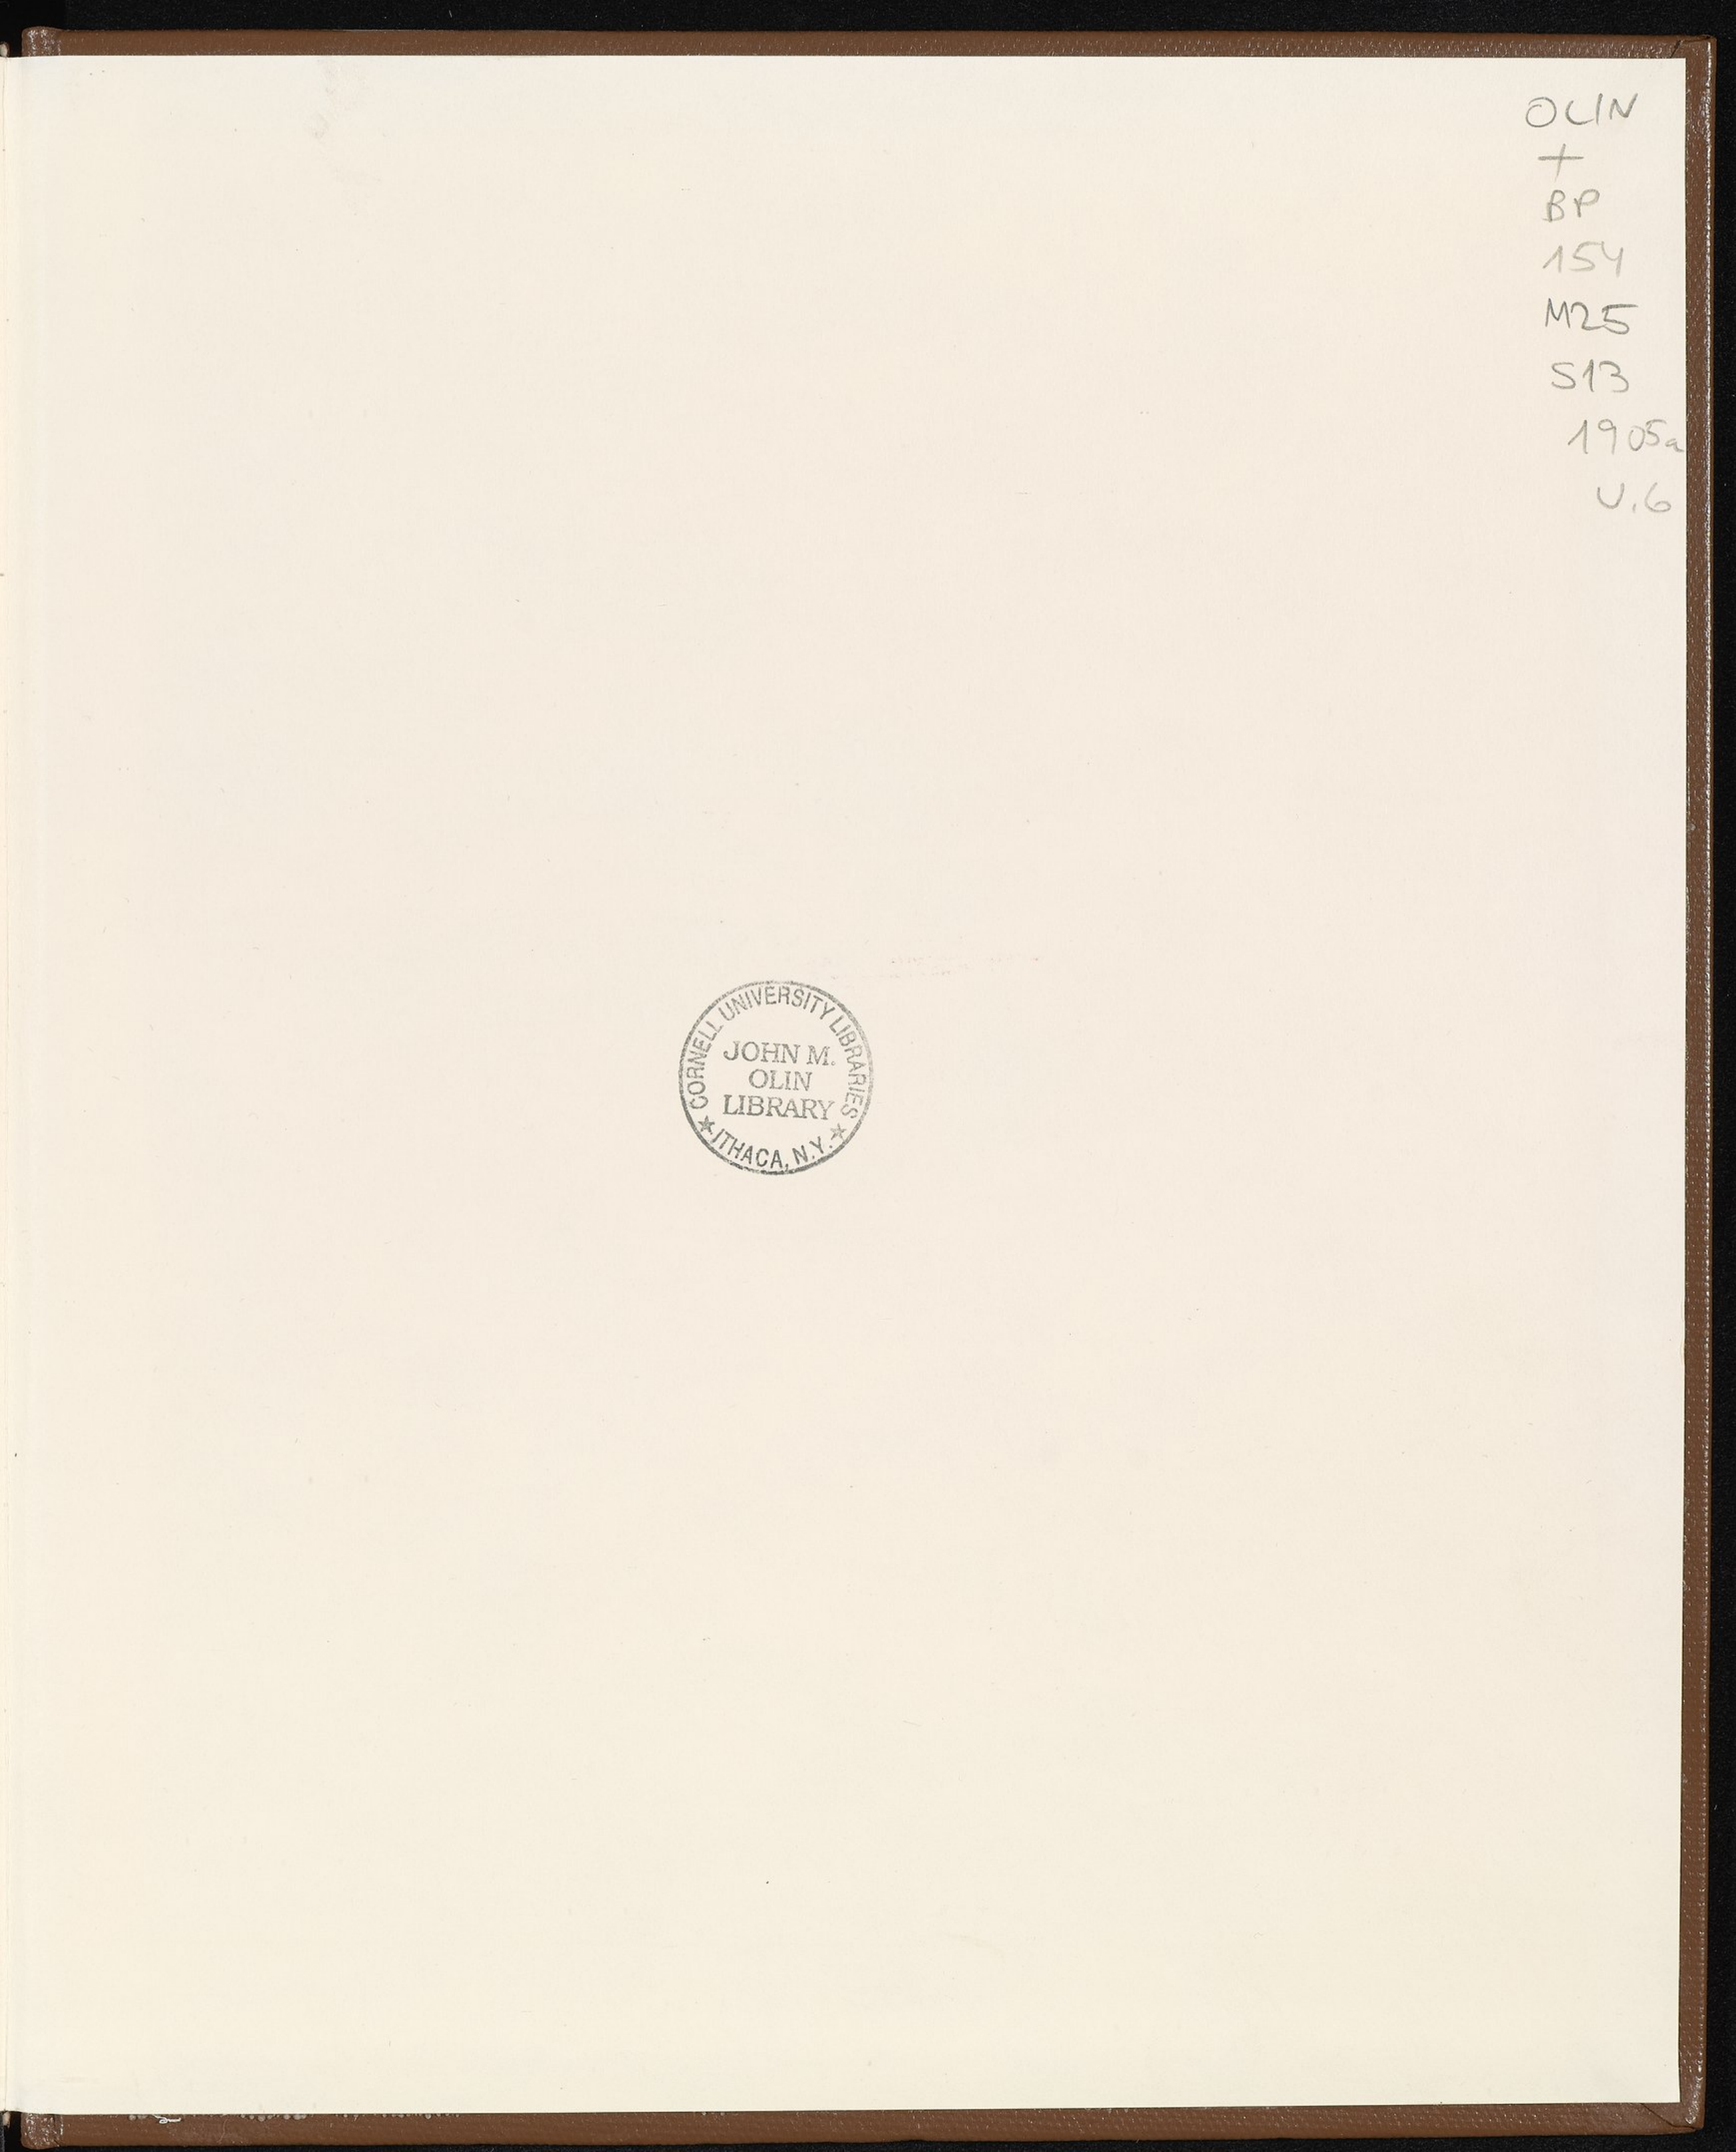 OLIN
+
BP
154
M25
S13
1905a
V.6
CORNELL UNIVERSITY LIBRARIES
JOHN M.
OLIN
LIBRARY
★ ITHACA, N.Y. ★